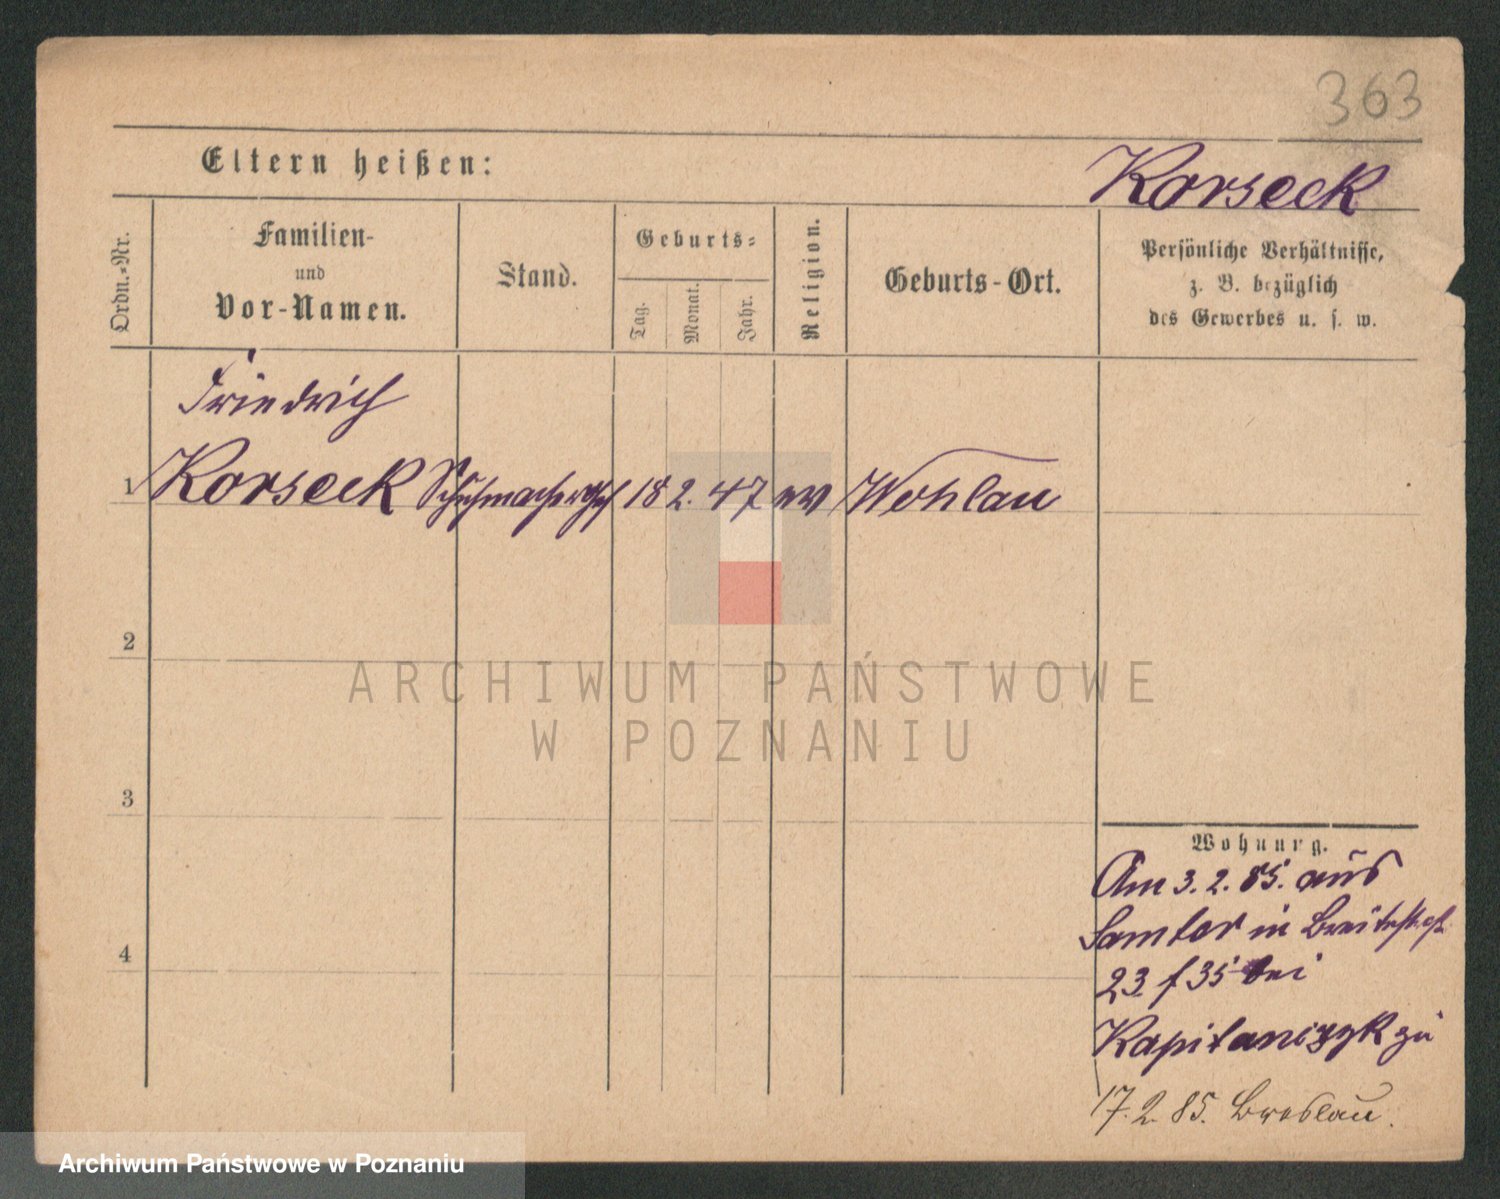 363
Eltern heißen:
Korseck
Ordn.-Nr.
Familien-
und
Vor-Namen.
Stand.
Geburts-
Tag.
Monat.
Jahr.
Religion.
Geburts-Ort.
Persönliche Verhältnisse,
z. B. bezüglich
des Gewerbes u. s. w.
Friedrich
1 Korseck Schuhmachergs 18 2. 47 ev Wohlau
2
3
4
ARCHIWUM PAŃSTWOWE
W POZNANIU
Wohnung.
Am 3. 2. 85. aus
Samter in Breitestr.
23 f 35 bei
Kapitanczyk zu
17. 2. 85. Breslau.
Archiwum Państwowe w Poznaniu